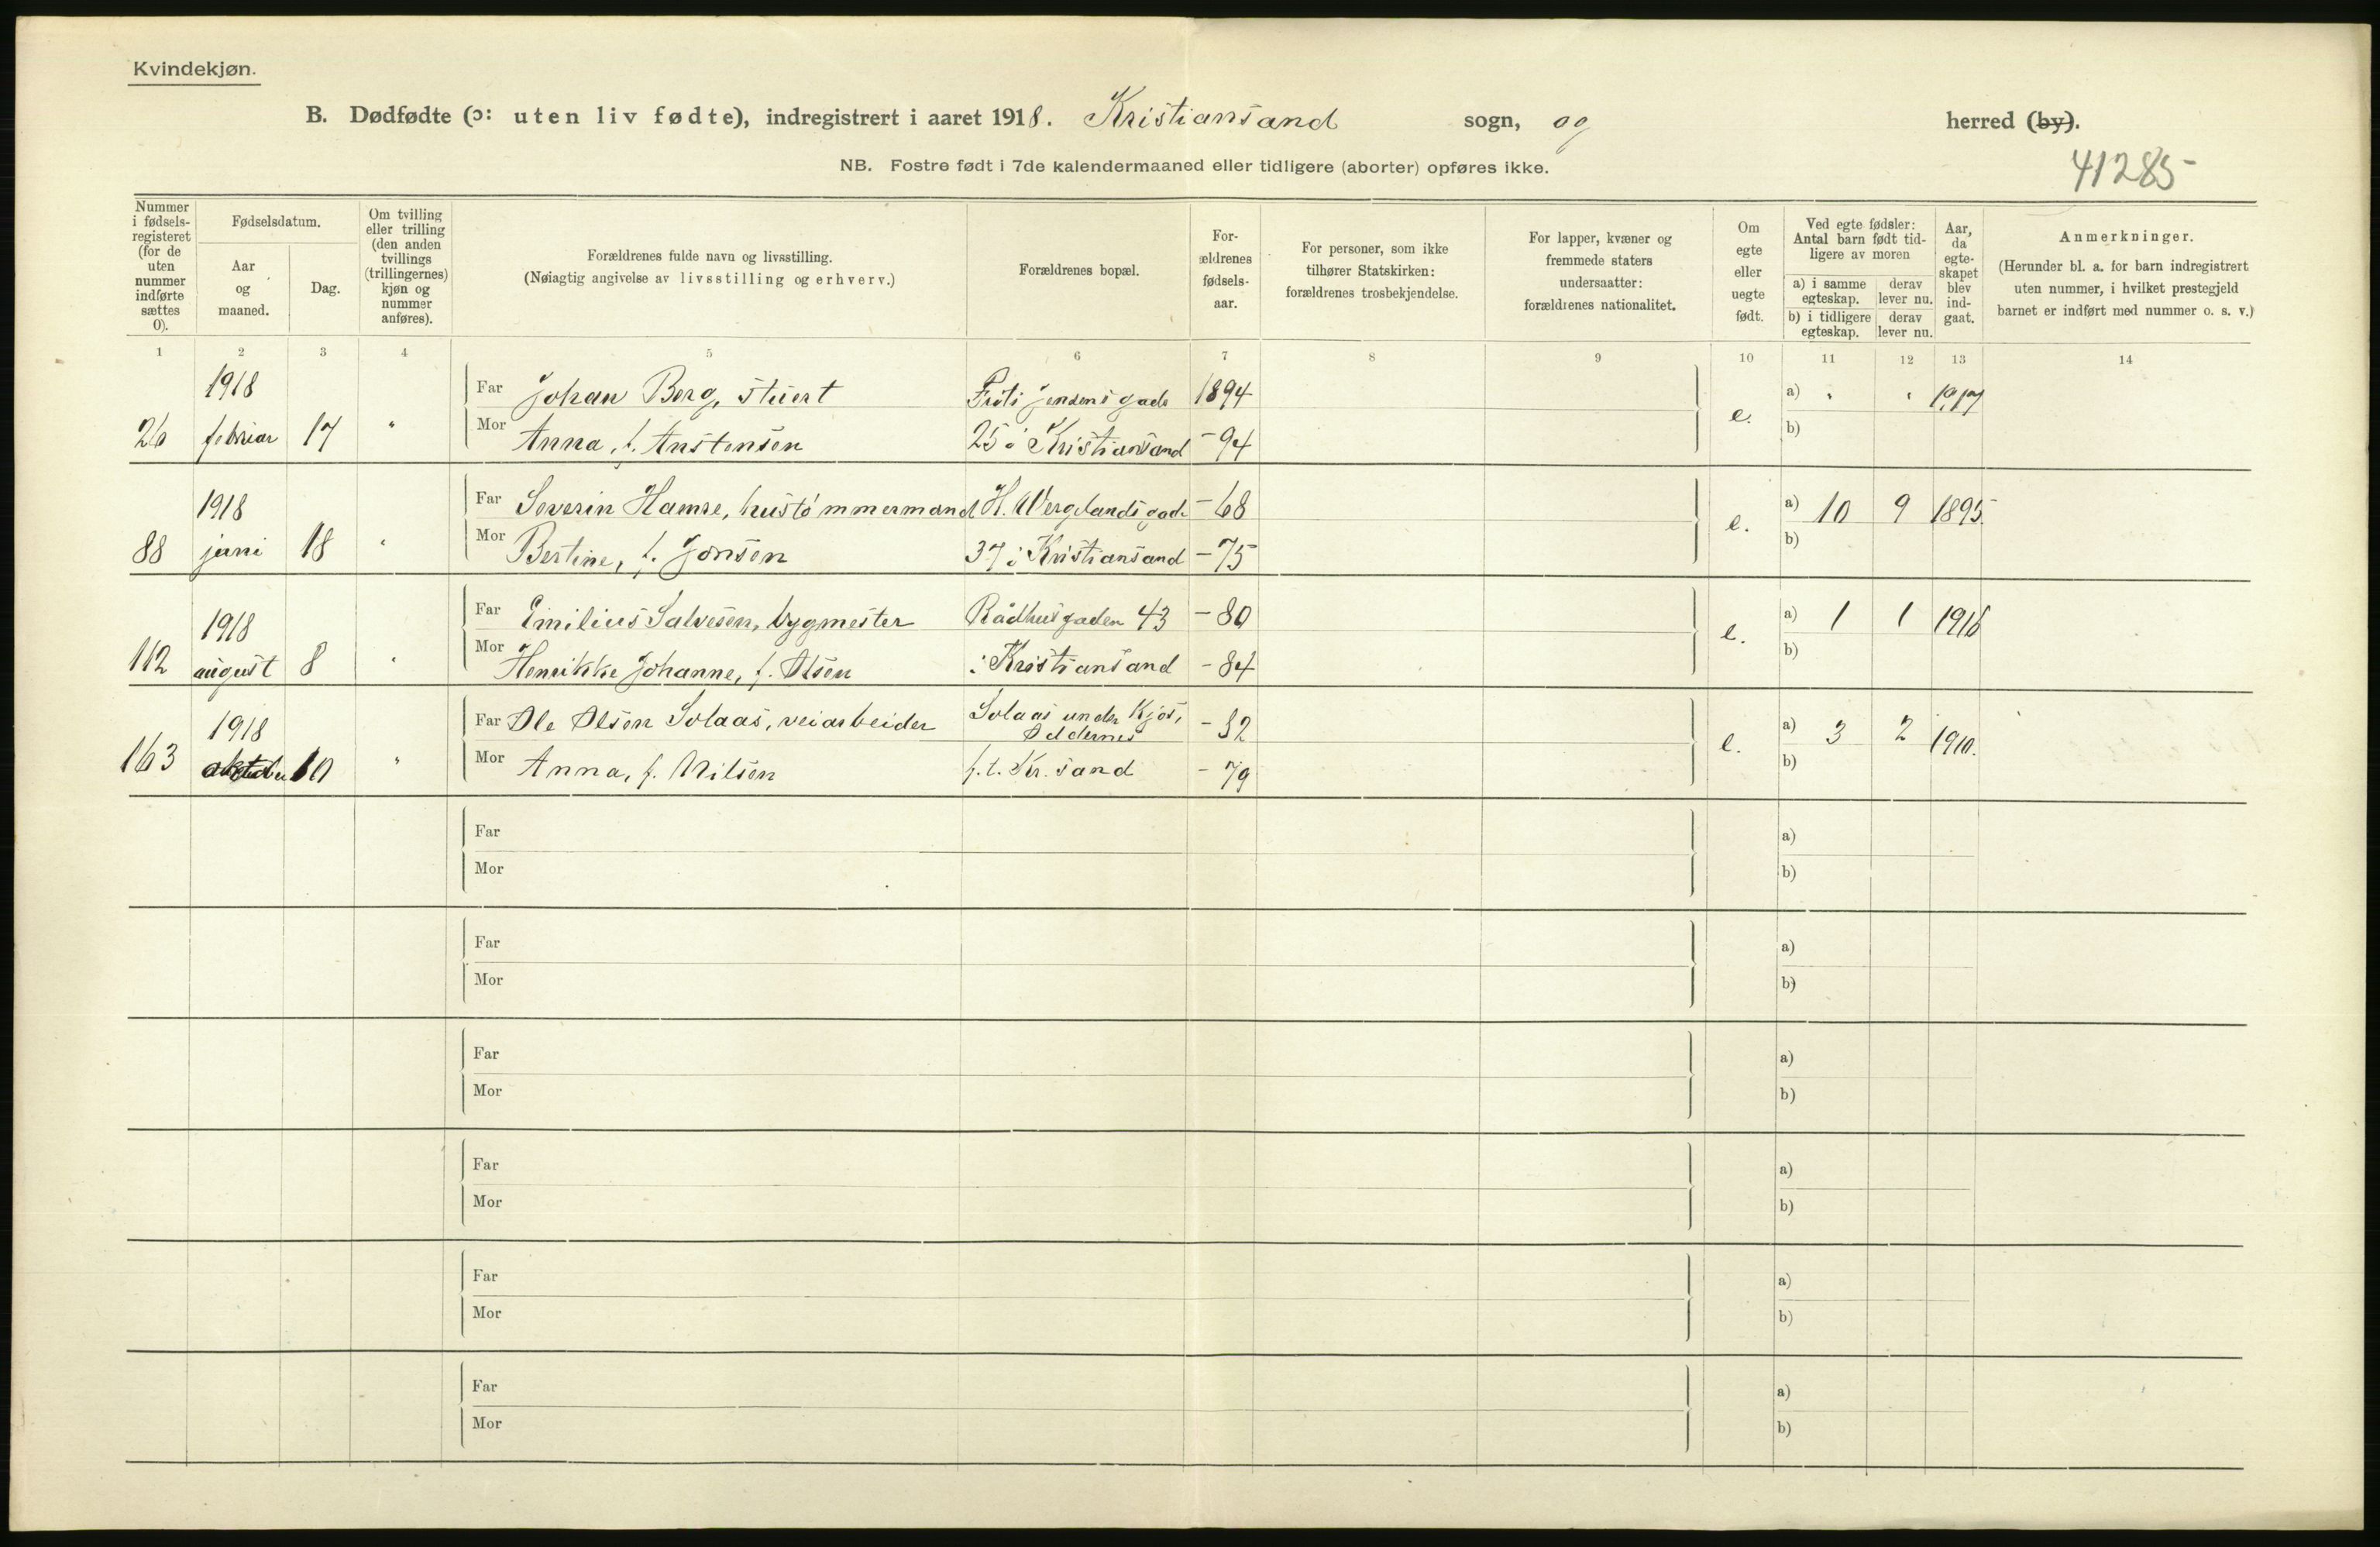 Kvindekjøn.
B. Dødfødte (ɔ: uten liv fødte), indregistrert i aaret 1918. Kristiansand sogn, og herred (by).
NB. Fostre født i 7de kalendermaaned eller tidligere (aborter) opføres ikke.
41285
Nummer i fødsels-registeret (for de uten nummer indførte sættes 0).
Fødselsdatum.
Aar og maaned.
Dag.
Om tvilling eller trilling (den anden tvillings (trillingernes) kjøn og nummer anføres).
Forældrenes fulde navn og livsstilling.
(Nøiagtig angivelse av livsstilling og erhverv.)
Forældrenes bopæl.
For-ældrenes fødsels-aar.
For personer, som ikke tilhører Statskirken: forældrenes trosbekjendelse.
For lapper, kvæner og fremmede staters undersaatter: forældrenes nationalitet.
Om egte eller uegte født.
Ved egte fødsler: Antal barn født tid-ligere av moren
a) i samme egteskap. derav lever nu.
b) i tidligere egteskap. derav lever nu.
Aar, da egte-skapet blev ind-gaat.
Anmerkninger.
(Herunder bl. a. for barn indregistrert uten nummer, i hvilket prestegjeld barnet er indført med nummer o. s. v.)
1 2 3 4 5 6 7 8 9 10 11 12 13 14
1918 Far Johan Berg, stuert jensens gade 1894 a) " " 1917
26 februar 17 " Mor Anna, f. Anstensen 25 i Kristiansand -94 e. b)
1918 Far Severin Hamre, hustømmermand H. Wergelands gade -68 a) 10 9 1895.
88 juni 18 " Mor Bertine, f. Jonsen 37 i Kristiansand -75 e. b)
1918 Far Emilius Salvesen, bygmester Rådhusgaden 43 -80 a) 1 1 1916
112 august 8 " Mor Henrikke Johanne, f. Olsen i Kristiansand -84 e. b)
1918 Far Ole Olsen Solaas, veiarbeider Solaas under Kjos, Oddernes -82 a) 3 2 1910.
163 oktober 10 " Mor Anna, f. Nilsen f.t. Kr.sand -79 e. b)
Far a)
Mor b)
Far a)
Mor b)
Far a)
Mor b)
Far a)
Mor b)
Far a)
Mor b)
Far a)
Mor b)